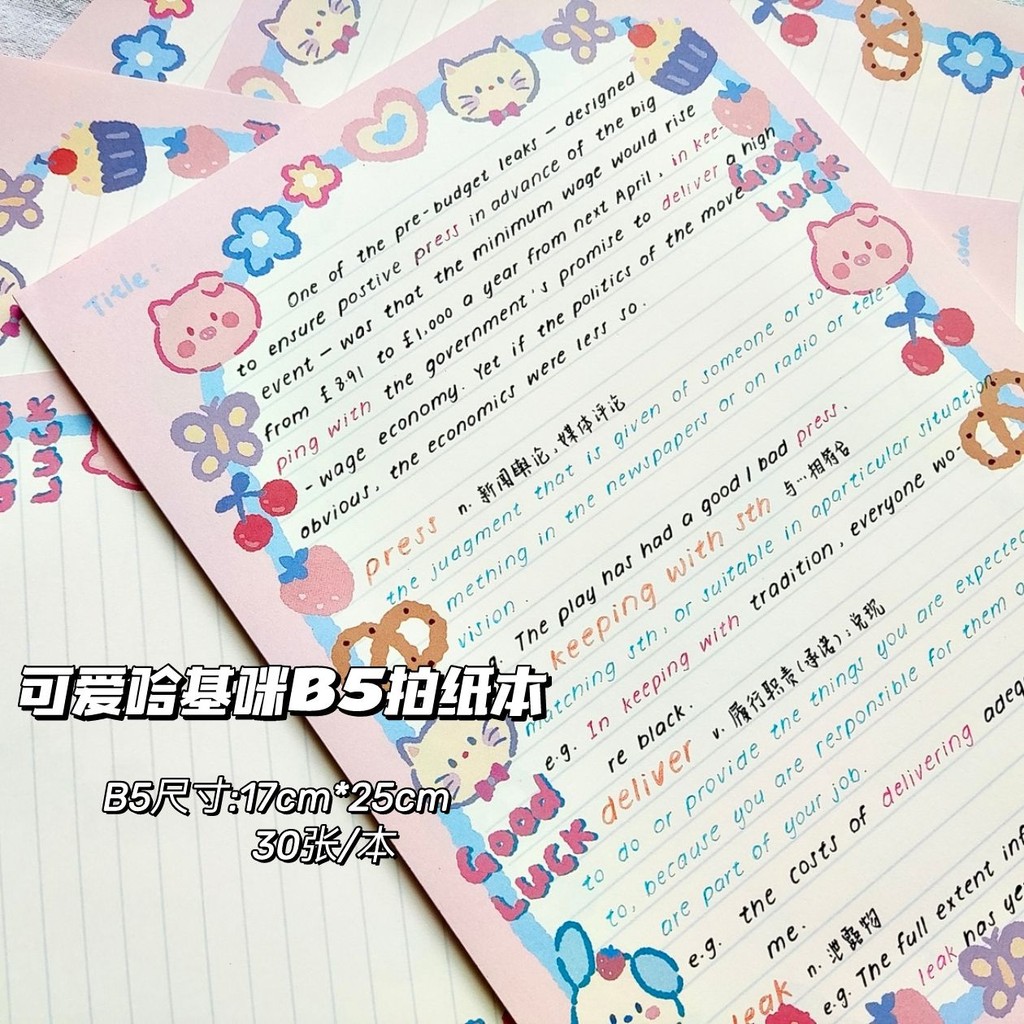 Title:
One of the pre-budget leaks — designed
to ensure postive press in advance of the big
event — was that the minimum wage would rise
from £891 to £1,000 a year from next April, in kee-
ping with the government's promise to deliver a high
-wage economy. Yet if the politics of the move
obvious, the economics were less so.
GOOD
LUCK
press n. 新闻舆论,媒体评论
the judgment that is given of someone or so
mething in the newspapers or on radio or tele-
vision.
e.g. The play has had a good / bad press.
keeping with sth 与…相符合
matching sth, or suitable in aparticular situation.
e.g. In keeping with tradition, everyone wo-
re black.
deliver v. 履行职责(承诺);兑现
to do or provide the things you are expected
to, because you are responsible for them o
are part of your job.
e.g. the costs of delivering adeq
me.
leak n. 泄露物
e.g. The full extent inf
leak has ye
GOOD
LUCK
LUCK
soda
可爱哈基咪B5拍纸本
B5尺寸:17cm*25cm
30张/本